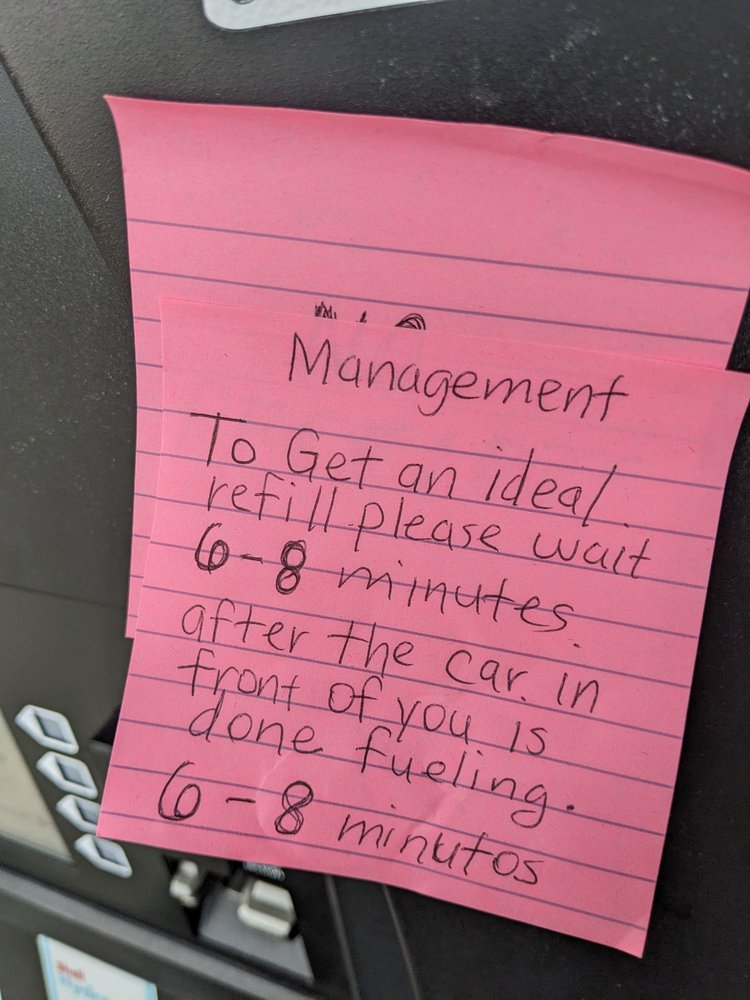 Management
To Get an ideal
refill please wait
6-8 minutes.
after the car. in
front of you is
done fueling.
6-8 minutos
Shell